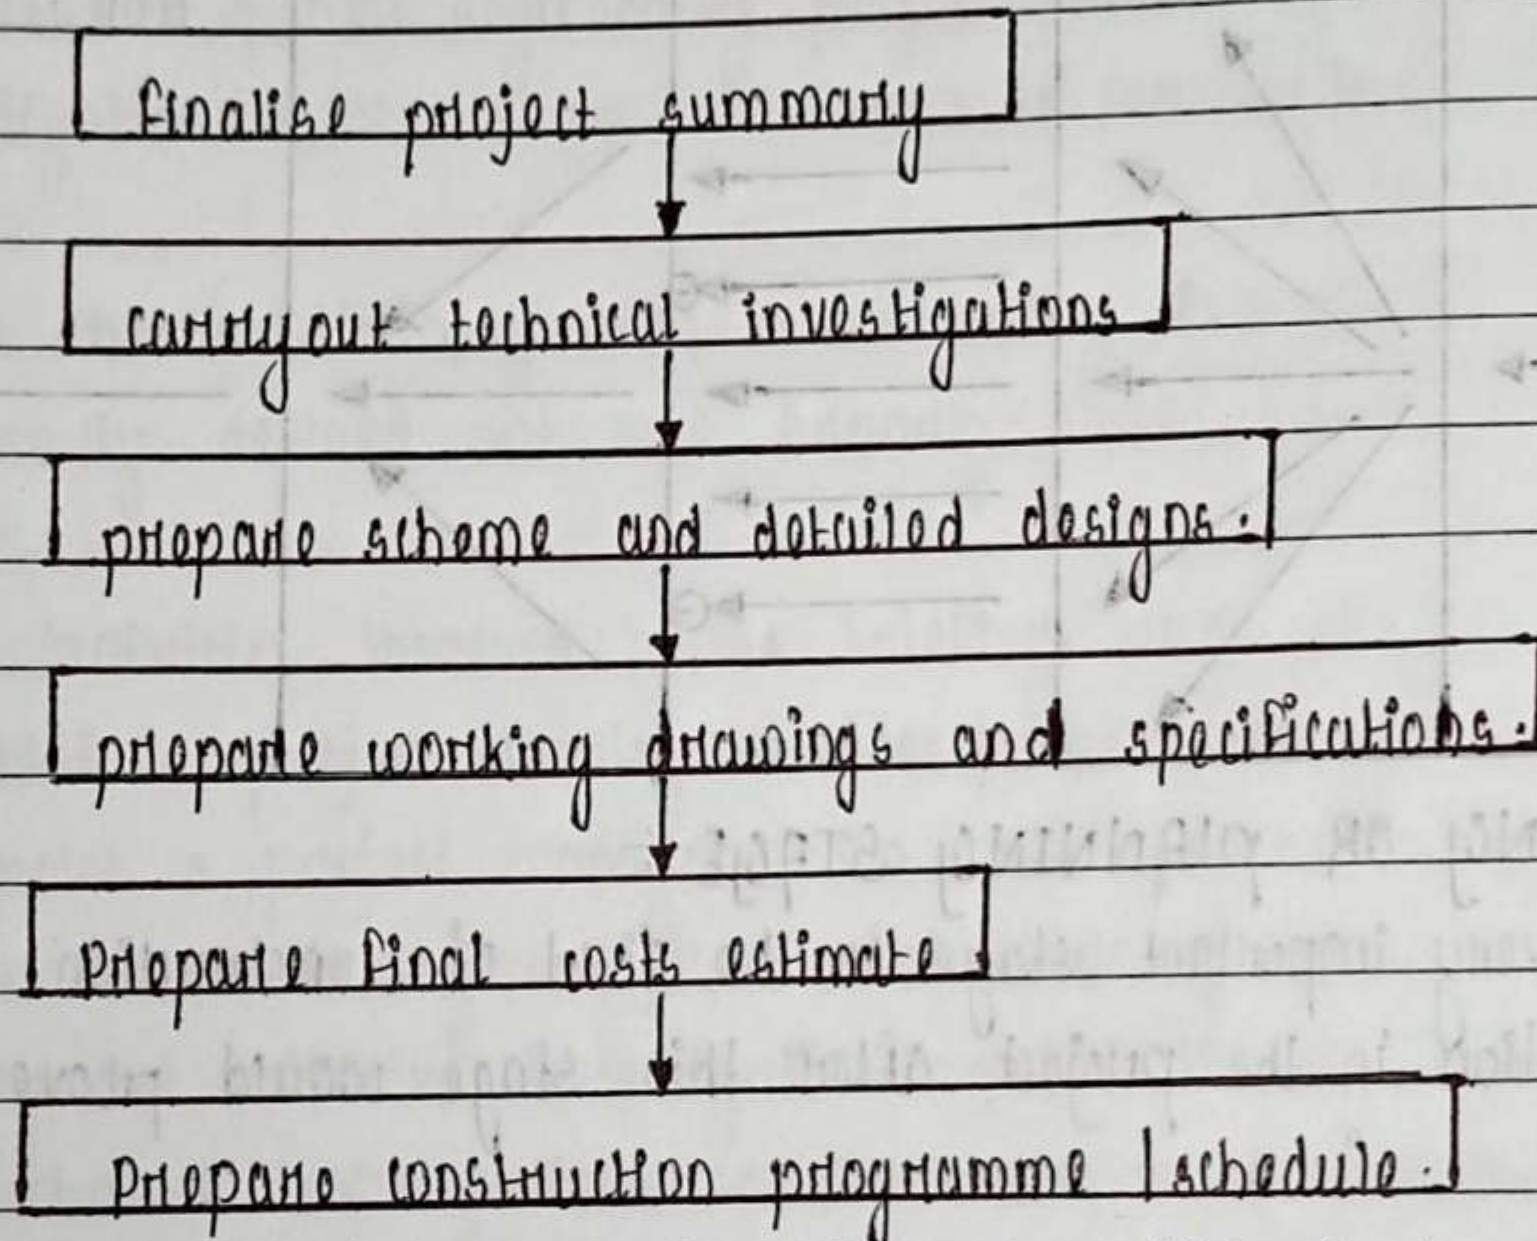 finalise project summary
carryout technical investigations
prepare scheme and detailed designs.
prepare working drawings and specifications.
Prepare final costs estimate
Prepare construction programme / schedule.